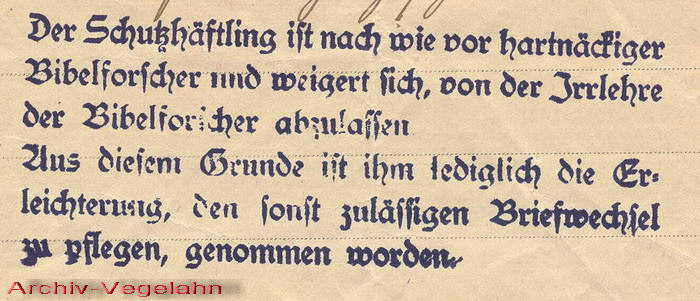 Der Schutzhäftling ist nach wie vor hartnäckiger
Bibelforscher und weigert sich, von der Irrlehre
der Bibelforscher abzulassen
Aus diesem Grunde ist ihm lediglich die Er=
leichterung, den sonst zulässigen Briefwechsel
zu pflegen, genommen worden.
Archiv-Vegelahn